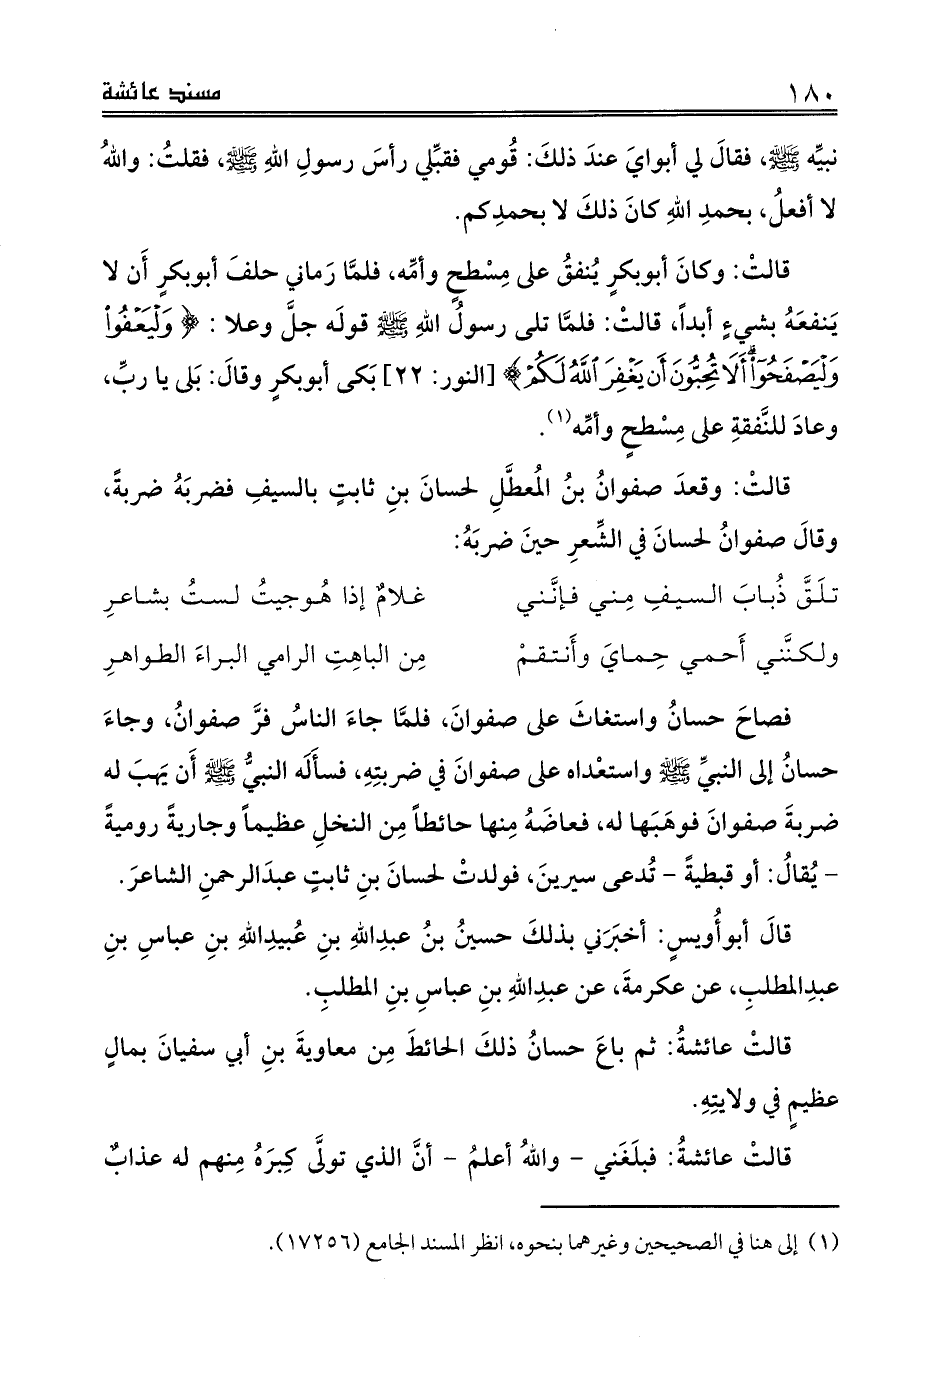 ١٨٠ مسند عائشة
نبيِّه ﷺ، فقالَ لي أبوايَ عندَ ذلكَ: قُومي فقبِّلي رأسَ رسولِ اللهِ ﷺ، فقلتُ: واللهُ
لا أفعلُ، بحمدِ اللهِ كانَ ذلكَ لا بحمدِكم.
قالتْ: وكانَ أبوبكرٍ يُنفقُ على مِسْطحٍ وأمِّه، فلمَّا رَماني حلفَ أبوبكرٍ أَن لا
يَنفعَهُ بشيءٍ أبداً، قالتْ: فلمَّا تلى رسولُ اللهِ ﷺ قولَه جلَّ وعلا : ﴿ وَلْيَعْفُوا۟
وَلْيَصْفَحُوٓا۟ ۗ أَلَا تُحِبُّونَ أَن يَغْفِرَ ٱللَّهُ لَكُمْ ﴾ [النور: ٢٢] بَكى أبوبكرٍ وقالَ: بَلى يا ربِّ،
وعادَ للنَّفقةِ على مِسْطحٍ وأمِّه(١).
قالتْ: وقعدَ صفوانُ بنُ المُعطَّلِ لحسانَ بنِ ثابتٍ بالسيفِ فضربَهُ ضربةً،
وقالَ صفوانُ لحسانَ في الشِّعرِ حينَ ضربَهُ:
تلَقَّ ذُبابَ السيفِ مِني فإنَّني غلامٌ إذا هُوجيتُ لستُ بشاعرِ
ولكنَّني أَحمي حِمايَ وأَنتقمْ مِن الباهتِ الرامي البراءَ الطواهرِ
فصاحَ حسانُ واستغاثَ على صفوانَ، فلمَّا جاءَ الناسُ فرَّ صفوانُ، وجاءَ
حسانُ إلى النبيِّ ﷺ واستعْداه على صفوانَ في ضربتِهِ، فسأَلَه النبيُّ ﷺ أَن يهَبَ له
ضربةَ صفوانَ فوهَبَها له، فعاضَهُ مِنها حائطاً مِن النخلِ عظيماً وجاريةً روميةً
– يُقالُ: أو قبطيةً – تُدعى سيرينَ، فولدتْ لحسانَ بنِ ثابتٍ عبدَالرحمنِ الشاعرَ.
قالَ أبوأُويسٍ: أخبَرَني بذلكَ حسينُ بنُ عبدِاللهِ بنِ عُبيدِاللهِ بنِ عباسِ بنِ
عبدِالمطلبِ، عن عكرمةَ، عن عبدِاللهِ بنِ عباسِ بنِ المطلبِ.
قالتْ عائشةُ: ثم باعَ حسانُ ذلكَ الحائطَ مِن معاويةَ بنِ أبي سفيانَ بمالٍ
عظيمٍ في ولايتِهِ.
قالتْ عائشةُ: فبلَغَني – واللهُ أعلمُ – أنَّ الذي تولَّى كِبرَهُ مِنهم له عذابٌ
(١) إلى هنا في الصحيحين وغيرهما بنحوه، انظر المسند الجامع (١٧٢٥٦).